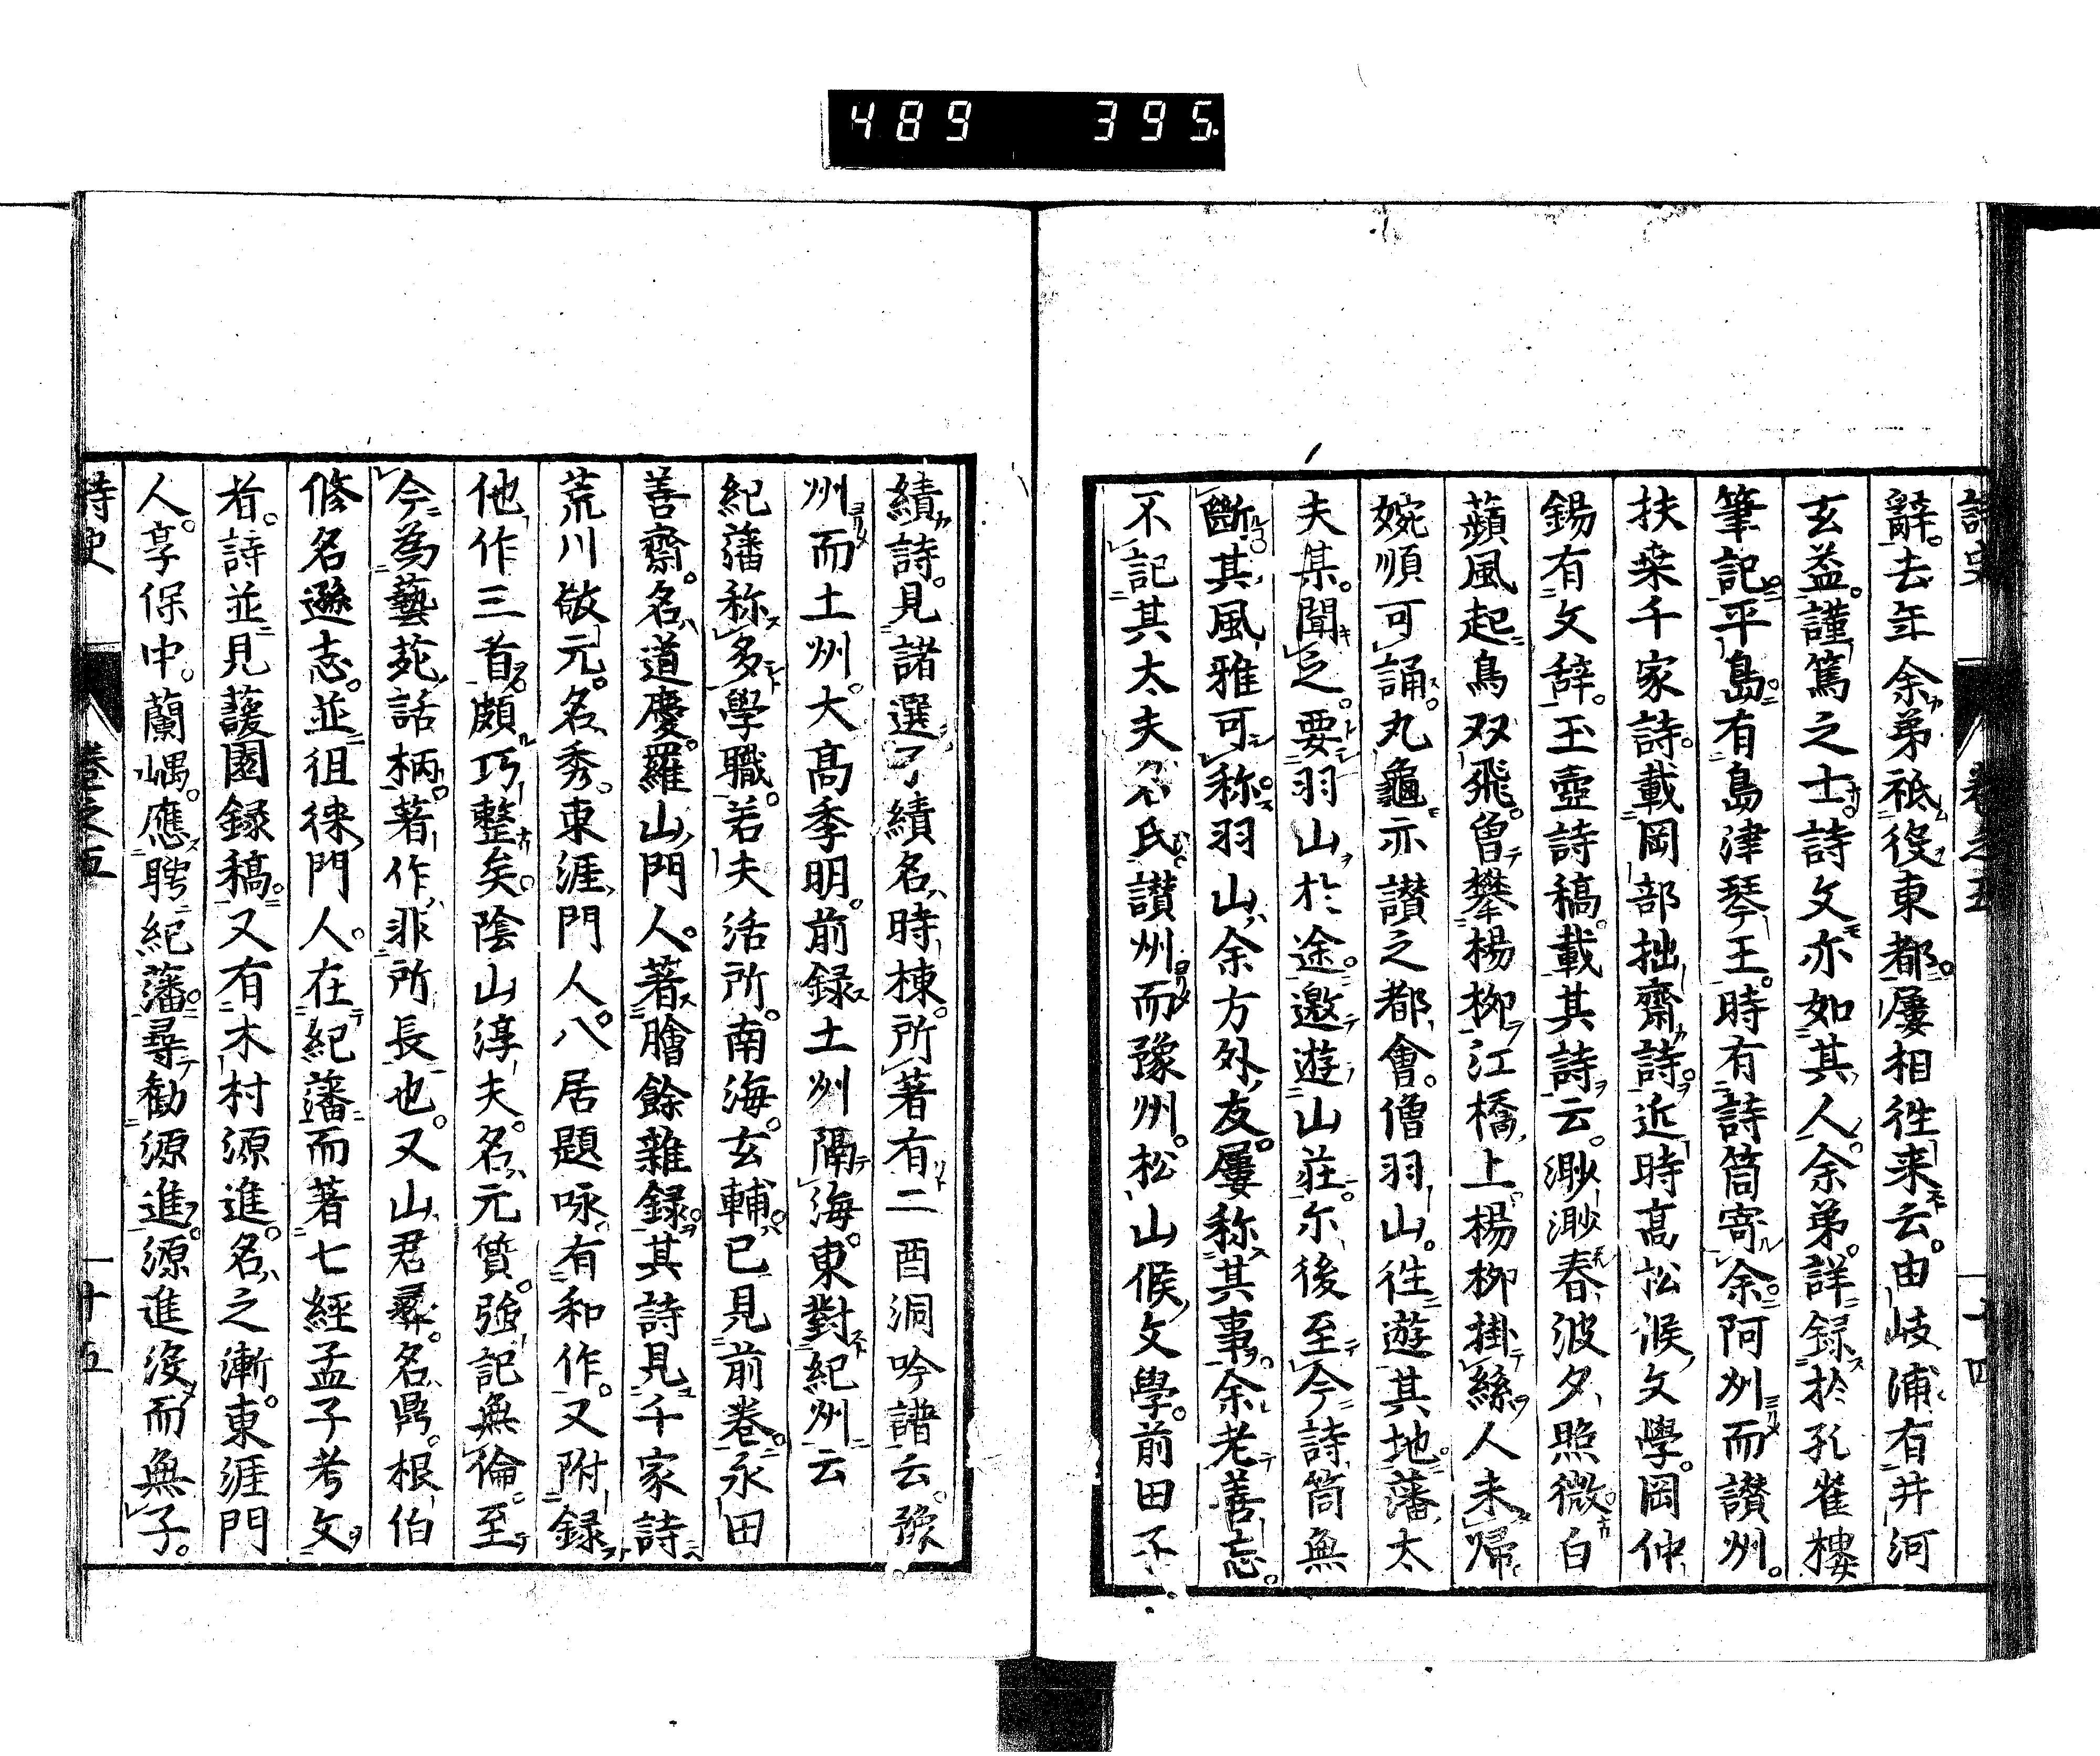 489 395
詩史 卷之五 十四
辭。去年余弟祗役東都。屢相徃來云。由岐浦有井河
玄益。謹篤之士。詩文亦如其人。余弟。詳録於孔雀樓
筆記。平島。有島津琴王。時有詩筒寄余。阿州而讃州。
扶桒千家詩。載岡部拙齋詩。近時髙松侯文學。岡仲
錫有文辞。玉壺詩稿。載其詩云。渺渺春波夕照微白
蘋風起鳥双飛。曾攀楊柳江橋上楊柳掛絲人未歸
婉順可誦。丸龜亦讃之都會。僧羽山。徃遊其地。藩太
夫某。聞之。要羽山於途。邀遊山莊。尓後至今詩筒無
斷。其風雅可称。羽山余方外友。屢称其事。余老善忘。
不記其太夫名氏。讃州而豫州。松山候文學。前田子
績詩。見諸選。了績名時棟。所著有二酉洞吟譜云。豫
州而土州。大髙季明。前録土州隔海。東對紀州云
紀藩称多學職。若夫活所。南海。玄輔。已見前卷。永田
善齋。名道慶。羅山門人。著膾餘雜録。其詩見千家詩
荒川敬元。名秀。東涯門人。八居題咏。有和作。又附録
他作三首。頗巧整矣。陰山淳夫。名元質。強記無倫至
今為藝苑話柄。著作非所長也。又山君彝。名鼎。根伯
修名遜志。並徂徠門人。在紀藩而著七經孟子考文
者。詩並見蘐園録稿。又有木村源進。名之漸。東涯門
人。享保中。蘭嵎。應聘紀藩。尋勸源進。源進沒而無子。
詩史 卷之五 十五